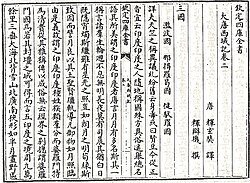 欽定四庫全書
大唐西域記卷二
唐 釋玄奘 譯
釋辯機 撰
三國
濫波國 那揭羅曷國 健馱邏國
詳夫天竺之稱異議糺紛舊云身毒或曰賢豆今從正
音宜云印度印度之人隨地稱國殊方異俗遙舉總名
語其所美謂之印度印度者唐言月月有多名斯其一
稱言諸羣生輪迴不息無明長夜莫有司晨其猶白日
既隱宵燭斯繼雖有星光之照豈如朗月之明苟緣斯
致因而譬月良以其土聖賢繼軌導凡御物如月照臨
由是義故謂之印度印度種姓族類羣分而婆羅門特
為清貴從其雅稱傳以成俗無云經界之別總謂婆羅
門國焉若其封疆之域可得而言五印度之境周九萬
餘里三垂大海北背雪山北廣南狹形如半月畫野區